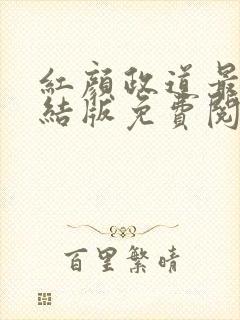 紅顏政道最
結版免費閱
百里繁晴